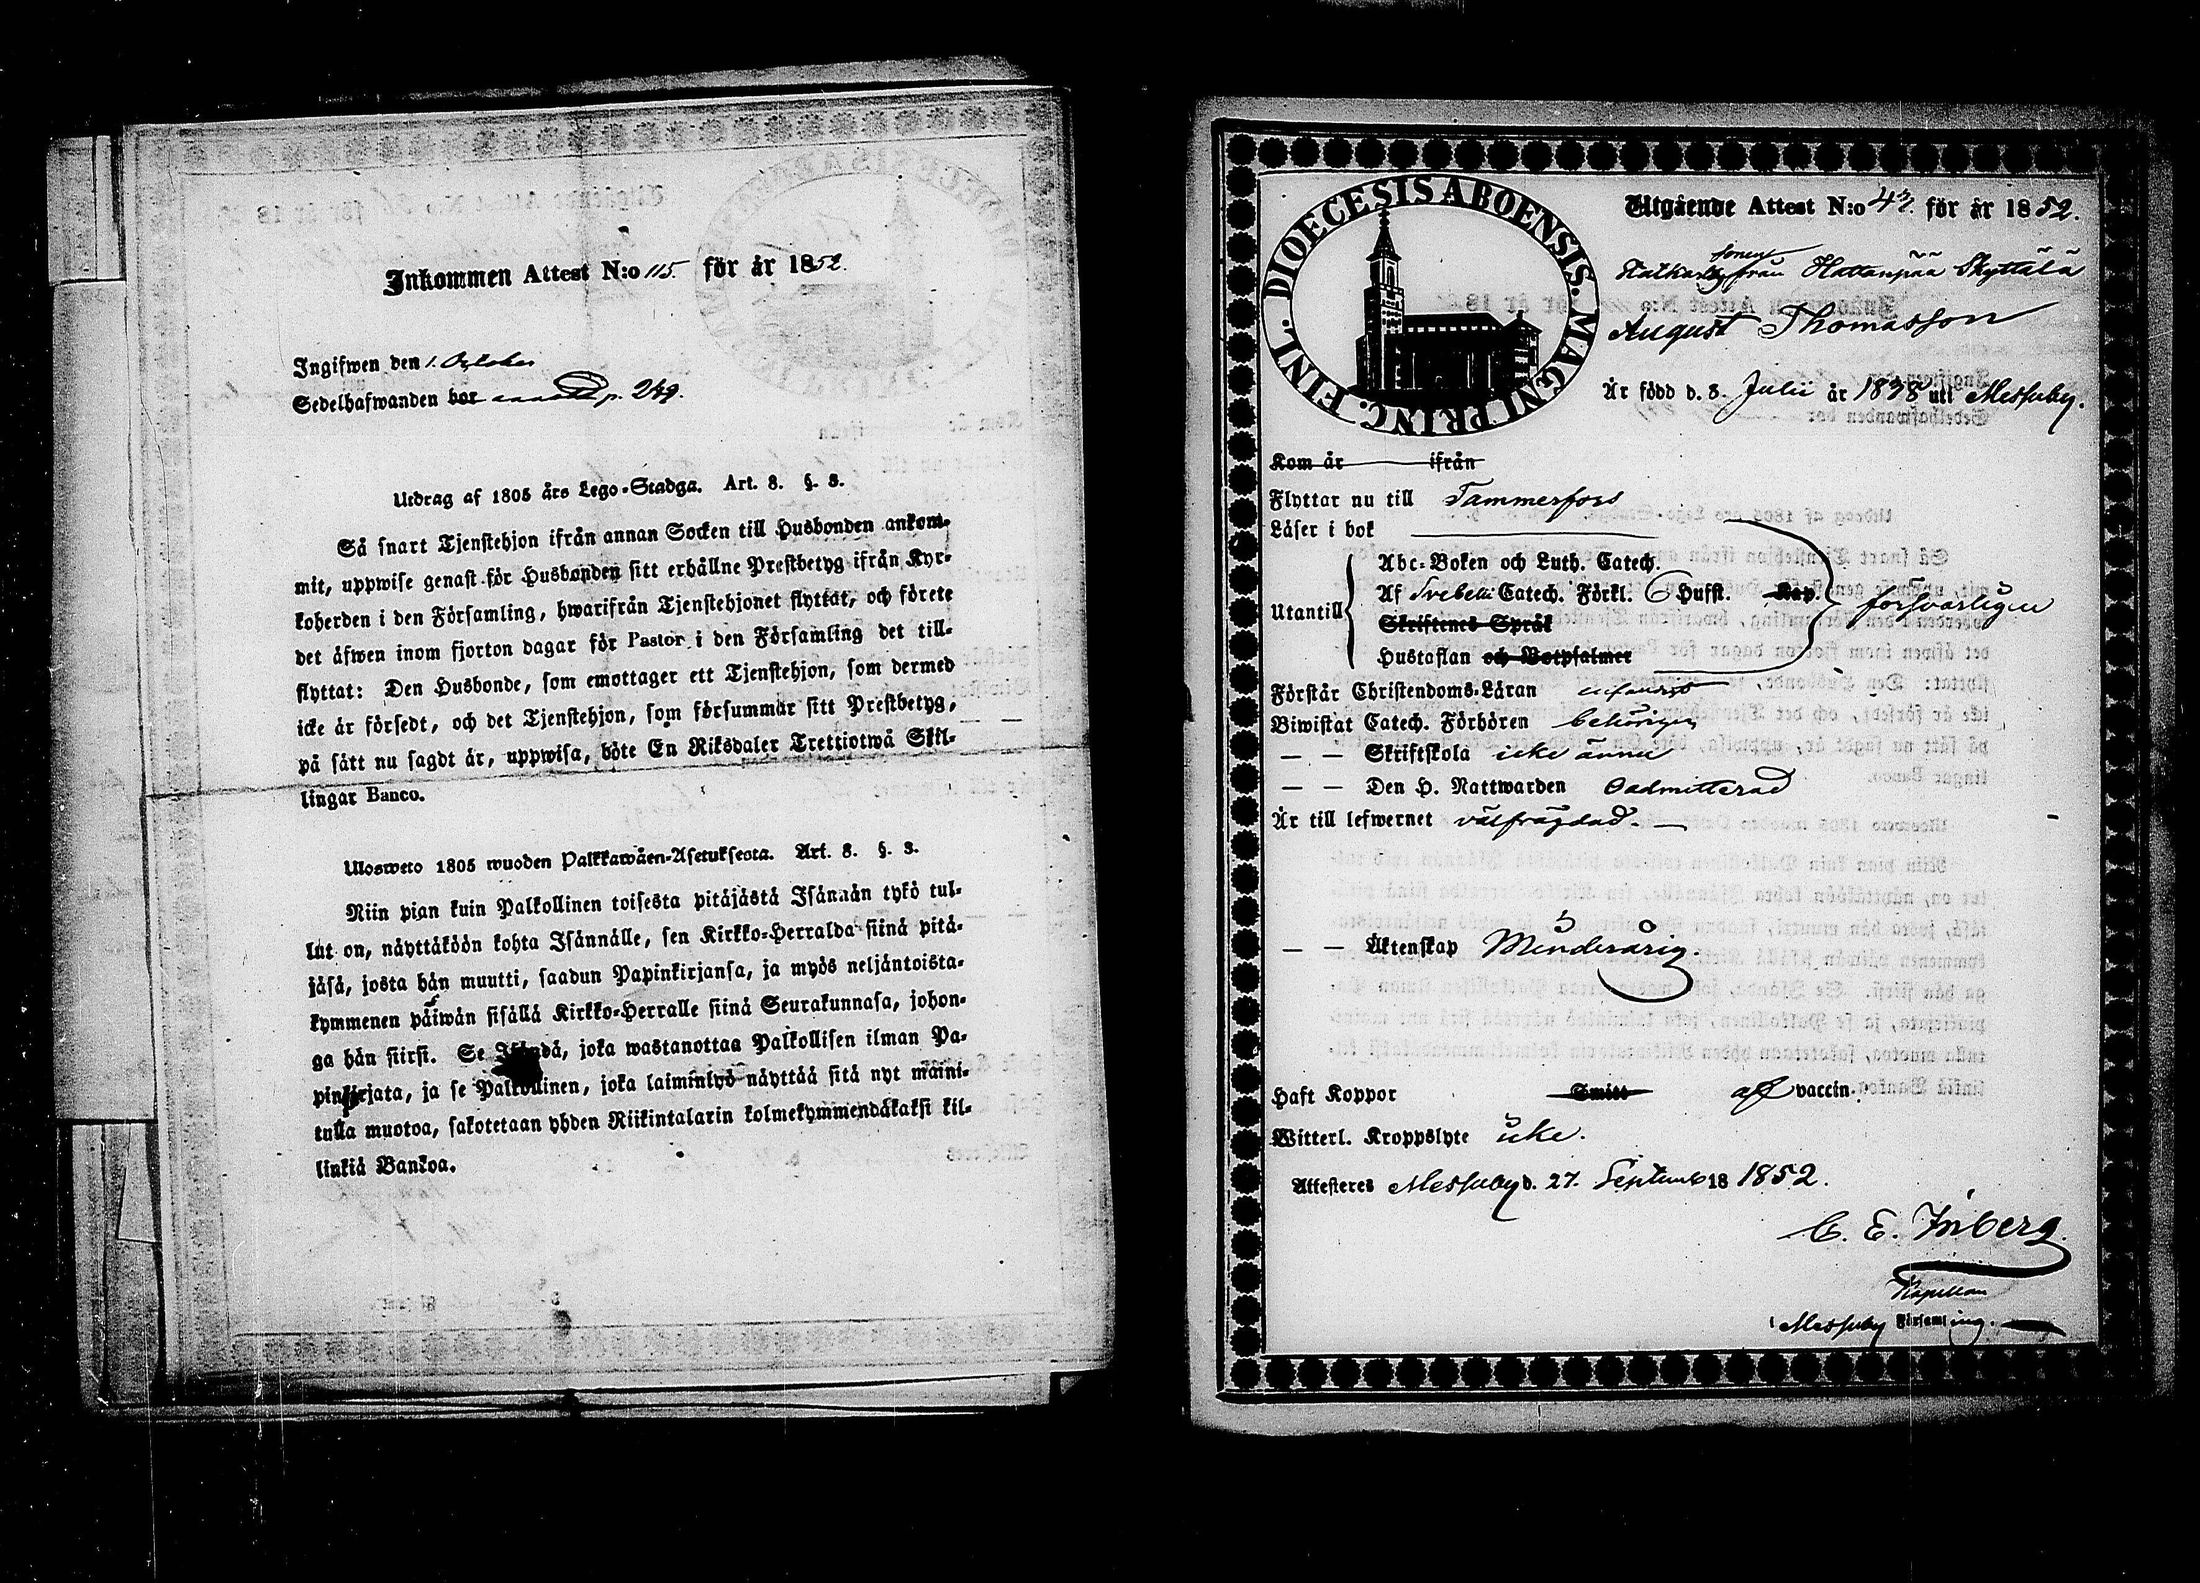 Inkommen Attest N:o 115. för år 1852.
Ingifwen den 1. October
Sedelhafwanden bor p. 249.
Utdrag af 1805 års Lego-Stadga. Art. 8. §. 3.
Så snart Tjenstehjon ifrån annan Socken till Husbonden ankom-
mit, uppwise genast för Husbonden sitt erhållne Prestbetyg ifrån Kyr-
koherden i den Församling, hwarifrån Tjenstehjonet flyttat, och förete
det äfwen inom fjorton dagar för Pastor i den Församling det till-
flyttat: Den Husbonde, som emottager ett Tjenstehjon, som dermed
icke är försedt, och det Tjenstehjon, som försummar sitt Prestbetyg,
på sätt nu sagdt är, uppwisa, böte En Riksdaler Trettiotwå Skil-
lingar Banco.
Ulosweto 1805 wuoden Palkkawäen-Asetuksesta. Art. 8. §. 3.
Niin pian kuin Palkollinen toisesta pitäjästä Isännän tykö tul-
lut on, näyttäköön kohta Isännälle, sen Kirkko-Herralda siinä pitä-
jäsä, josta hän muutti, saadun Papinkirjansa, ja myös neljäntoista-
kymmenen päiwän sisällä Kirkko-Herralle siinä Seurakunnasa, johon-
ga hän siirsi. Se Isändä, joka wastanottaa Palkollisen ilman Pa-
pinkirjata, ja se Palkollinen, joka laiminlyö näyttää sitä nyt maini-
tulla muotoa, sakotetaan yhden Riikintalarin kolmekymmendäkaksi kil-
linkiä Bankoa.
DIOECESIS ABOENSIS. MAGNI PRINC. FINL.
Utgående Attest N:o 47. för år 1852.
sonen
ifrån Hattanpää Skyttälä
August Thomasson
Är född d. 8. Julii år 1838 uti Messuby.
Kom år ifrån
Flyttar nu till Tammerfors
Läser i bok
Abc-Boken och Luth. Catech.
Utantill Af Svebelii Catech. Förkl. Husst. Kap. försvarligen
Skriftenes Språk
Hustaflan och Botpsalmer
Förstår Christendoms-Läran
Biwistat Catech. Förhören behörigen
— — Skriftskola icke ännu
— — Den H. Nattwarden Oadmitterad
Är till lefwernet välfrägdad. —
— — Äktenskap Minderårig.
Haft Koppor Smitt af vaccin.
Witterl. Kroppslyte icke.
Attesteres Messuby d. 27. Septemb 18 1852.
C. E. Inberg.
Kapellan
i Messuby Församling.